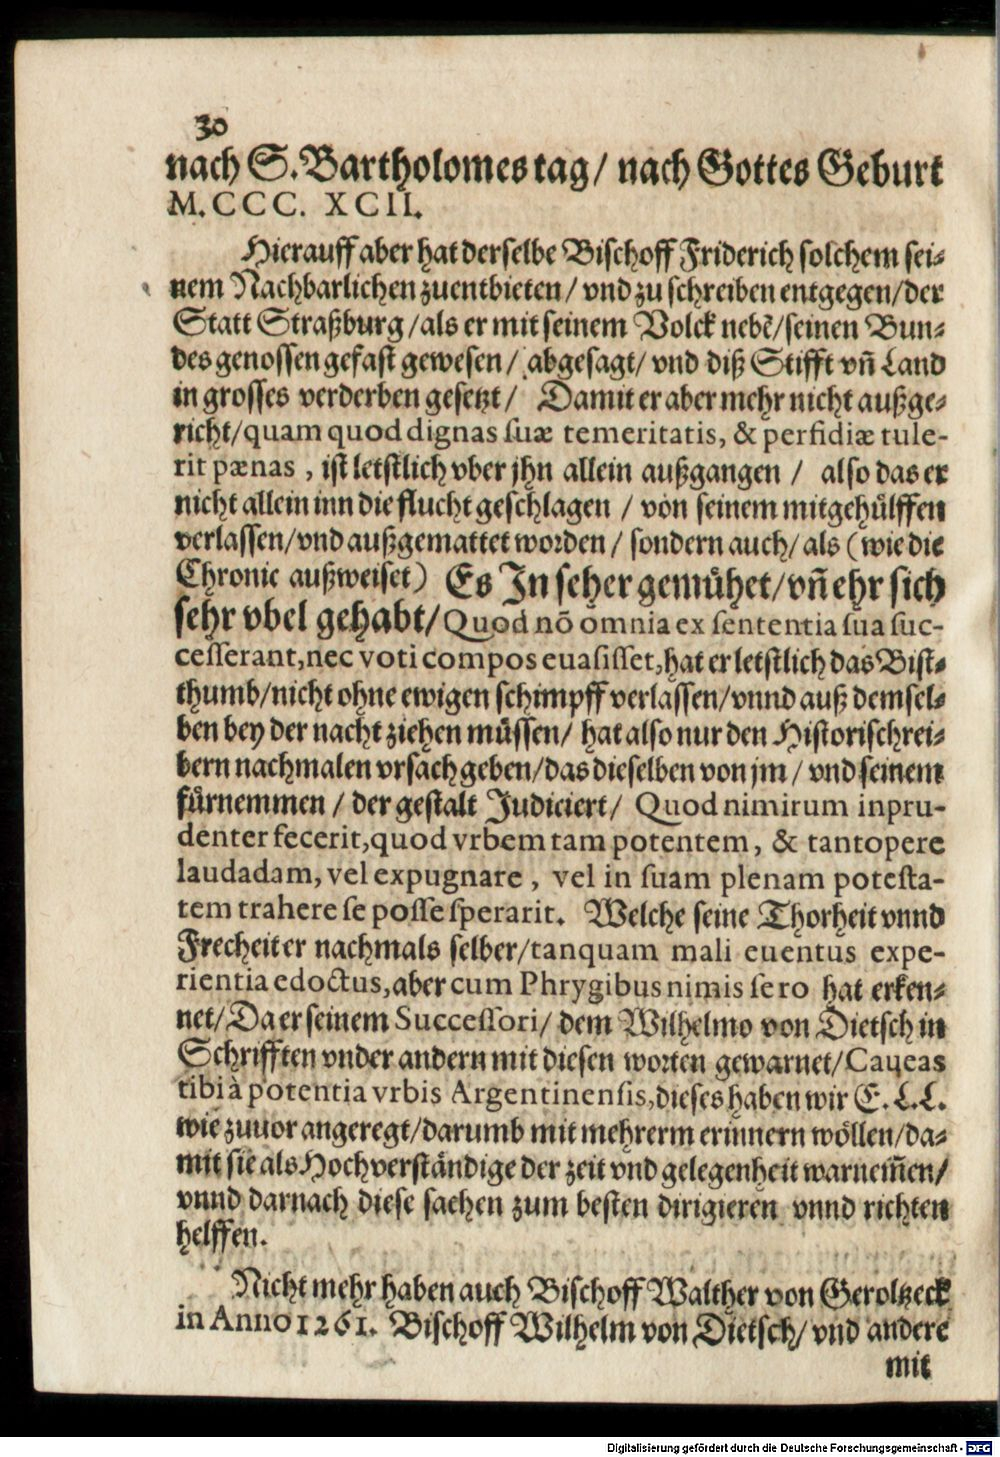 30
nach S. Bartholomes tag/ nach Gottes Geburt
M.CCC. XCII.
Hierauff aber hat derselbe Bischoff Friderich solchem sei-
nem Nachbarlichen zuentbieten/ vnd zu schreiben entgegen/der
Statt Straßburg/als er mit seinem Volck nebē/seinen Bun-
des genossen gefast gewesen/ abgesagt/ vnd diß Stifft vn̄ Land
in grosses verderben gesetzt/ Damit er aber mehr nicht außge-
richt/quam quod dignas suæ temeritatis, & perfidiæ tule-
rit pænas, ist letstlich vber jhn allein außgangen / also das er
nicht allein inn die flucht geschlagen / von seinem mitgehülffen
verlassen/vnd außgemattet worden/ sondern auch/ als (wie die
Chronic außweiset) Es In seher gemühet/vn̄ ehr sich
sehr vbel gehabt/Quod nō omnia ex sententia sua suc-
cesserant,nec voti compos euasisset,hat er letstlich das Bist-
thumb/nicht ohne ewigen schimpff verlassen/vnnd auß demsel-
ben bey der nacht ziehen müssen/ hat also nur den Historischrei-
bern nachmalen vrsach geben/das dieselben von jm/ vnd seinem
fürnemmen / der gestalt Judiciert/ Quod nimirum inpru-
denter fecerit,quod vrbem tam potentem, & tantopere
laudadam, vel expugnare, vel in suam plenam potesta-
tem trahere se posse sperarit. Welche seine Thorheit vnnd
Frecheit er nachmals selber/tanquam mali euentus expe-
rientia edoctus,aber cum Phrygibus nimis sero hat erken-
net/Da er seinem Successori/ dem Wilhelmo von Dietsch in
Schrifften vnder andern mit diesen worten gewarnet/Caueas
tibi à potentia vrbis Argentinensis,dieses haben wir E. L.L.
wie zuuor angeregt/darumb mit mehrerm erinnern wöllen/da-
mit sie als Hochverständige der zeit vnd gelegenheit warnem̄en/
vnnd darnach diese sachen zum besten dirigieren vnnd richten
helffen.
Nicht mehr haben auch Bischoff Walther von Geroltzeck
in Anno 1261. Bischoff Wilhelm von Dietsch/ vnd andere
mit
Digitalisierung gefördert durch die Deutsche Forschungsgemeinschaft - DFG